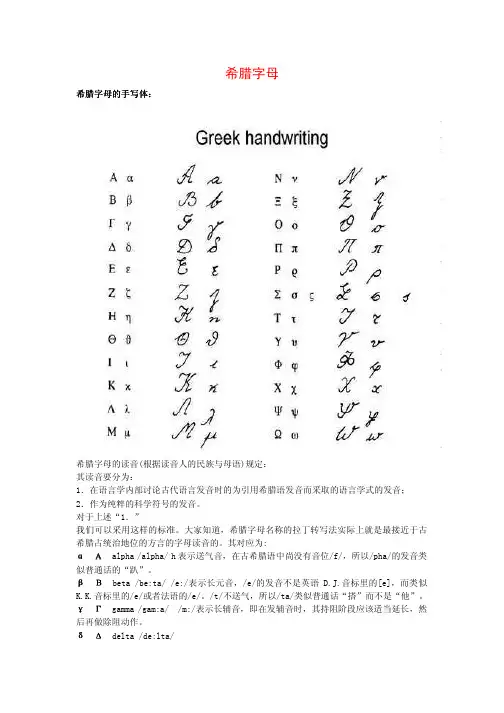 希腊字母
希腊字母的手写体：
Greek handwriting
Α α Ν ν
Β β Ξ ξ
Γ γ Ο ο
Δ δ Π π
Ε ε Ρ ϱ
Ζ ζ Σ σ ς
Η η Τ τ
Θ ϑ Υ υ
Ι ι Φ φ
Κ ϰ Χ χ
Λ λ Ψ ψ
Μ μ Ω ω
希腊字母的读音(根据读音人的民族与母语)规定：
其读音要分为：
1．在语言学内部讨论古代语言发音时的为引用希腊语发音而采取的语言学式的发音；
2．作为纯粹的科学符号的发音。
对于上述“1．”
我们可以采用这样的标准。大家知道，希腊字母名称的拉丁转写法实际上就是最接近于古
希腊古统治地位的方言的字母读音的。其对应为：
α Α alpha /alpha/ h表示送气音，在古希腊语中尚没有音位/f/，所以/pha/的发音类
似普通话的“趴”。
β Β beta /be:ta/ /e:/表示长元音，/e/的发音不是英语 D.J.音标里的[e]，而类似
K.K.音标里的/e/或者法语的/e/。/t/不送气，所以/ta/类似普通话“搭”而不是“他”。
γ Γ gamma /gam:a/ /m:/表示长辅音，即在发辅音时，其持阻阶段应该适当延长，然
后再做除阻动作。
δ Δ delta /de:lta/